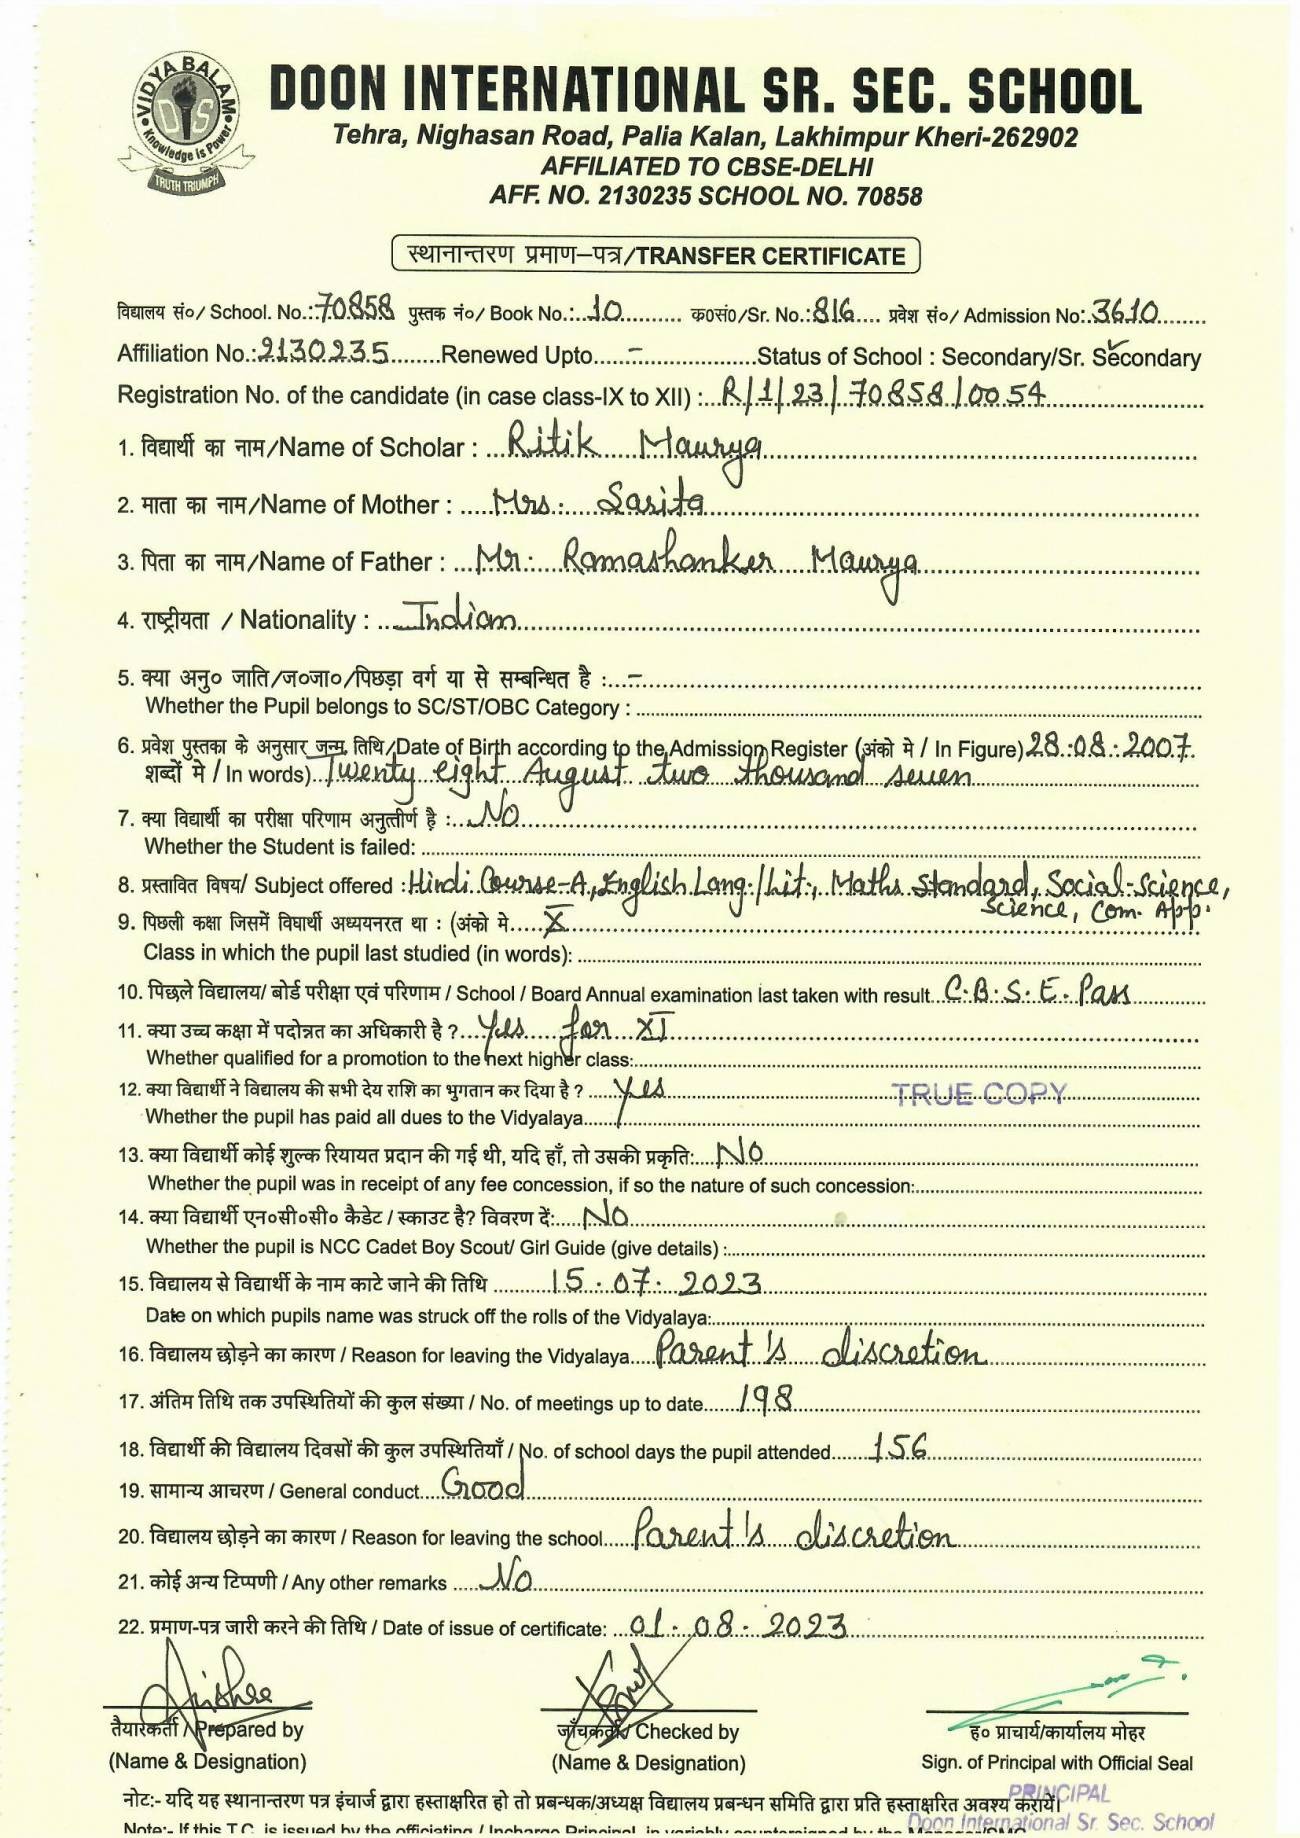 VIDYA BALAM
DIS
Knowledge is Power
TRUTH TRIUMPH
DOON INTERNATIONAL SR. SEC. SCHOOL
Tehra, Nighasan Road, Palia Kalan, Lakhimpur Kheri-262902
AFFILIATED TO CBSE-DELHI
AFF. NO. 2130235 SCHOOL NO. 70858
स्थानान्तरण प्रमाण–पत्र/TRANSFER CERTIFICATE
विद्यालय सं०/ School. No.:.70858 पुस्तक नं०/ Book No.:...10.......... ... क0सं0/Sr. No.:816.... प्रवेश सं०/ Admission No:.3610........
Affiliation No.:2130235........Renewed Upto.....–...................Status of School : Secondary/Sr. Secondary
Registration No. of the candidate (in case class-IX to XII) :..R/1/23/70858/0054
1. विद्यार्थी का नाम/Name of Scholar : ...Ritik Maurya
2. माता का नाम/Name of Mother : .....Mrs. Sarita
3. पिता का नाम/Name of Father : ...Mr. Ramashanker Maurya
4. राष्ट्रीयता / Nationality : ...Indian
5. क्या अनु० जाति/ज०जा०/पिछड़ा वर्ग या से सम्बन्धित है :...–
Whether the Pupil belongs to SC/ST/OBC Category :
6. प्रवेश पुस्तका के अनुसार जन्म तिथि/Date of Birth according to the Admission Register (अंको मे / In Figure) 28.08.2007.
शब्दों मे / In words)..Twenty eight August two thousand seven
7. क्या विद्यार्थी का परीक्षा परिणाम अनुत्तीर्ण है :...No
Whether the Student is failed:
8. प्रस्तावित विषय/ Subject offered :Hindi Course-A, English Lang./Lit., Maths Standard, Social-Science,
Science, Com. App.
9. पिछली कक्षा जिसमें विघार्थी अध्ययनरत था : (अंको मे.....X
Class in which the pupil last studied (in words):
10. पिछले विद्यालय/ बोर्ड परीक्षा एवं परिणाम / School / Board Annual examination last taken with result..C.B.S.E. Pass
11. क्या उच्च कक्षा में पदोन्नत का अधिकारी है ?...Yes for XI
Whether qualified for a promotion to the next higher class:
12. क्या विद्यार्थी ने विद्यालय की सभी देय राशि का भुगतान कर दिया है ? ....Yes
TRUE COPY
Whether the pupil has paid all dues to the Vidyalaya
13. क्या विद्यार्थी कोई शुल्क रियायत प्रदान की गई थी, यदि हाँ, तो उसकी प्रकृति:...No
Whether the pupil was in receipt of any fee concession, if so the nature of such concession:
14. क्या विद्यार्थी एन०सी०सी० कैडेट / स्काउट है? विवरण दें:....No
Whether the pupil is NCC Cadet Boy Scout/ Girl Guide (give details) :
15. विद्यालय से विद्यार्थी के नाम काटे जाने की तिथि .........15.07.2023
Date on which pupils name was struck off the rolls of the Vidyalaya:
16. विद्यालय छोड़ने का कारण / Reason for leaving the Vidyalaya....Parent's discretion
17. अंतिम तिथि तक उपस्थितियों की कुल संख्या / No. of meetings up to date......198
18. विद्यार्थी की विद्यालय दिवसों की कुल उपस्थितियाँ / No. of school days the pupil attended.......156
19. सामान्य आचरण / General conduct....Good
20. विद्यालय छोड़ने का कारण / Reason for leaving the school.....Parent's discretion
21. कोई अन्य टिप्पणी / Any other remarks .....No
22. प्रमाण-पत्र जारी करने की तिथि / Date of issue of certificate: ...01.08.2023
तैयारकर्ता / Prepared by
जाँचकर्ता / Checked by
ह० प्राचार्य/कार्यालय मोहर
(Name & Designation)
(Name & Designation)
Sign. of Principal with Official Seal
PRINCIPAL
नोटः- यदि यह स्थानान्तरण पत्र इंचार्ज द्वारा हस्ताक्षरित हो तो प्रबन्धक/अध्यक्ष विद्यालय प्रबन्धन समिति द्वारा प्रति हस्ताक्षरित अवश्य करायें।
Doon International Sr. Sec. School
Note:- If this T.C. is issued by the officiating / Incharge Principal, in variably countersigned by the Manager/SMC